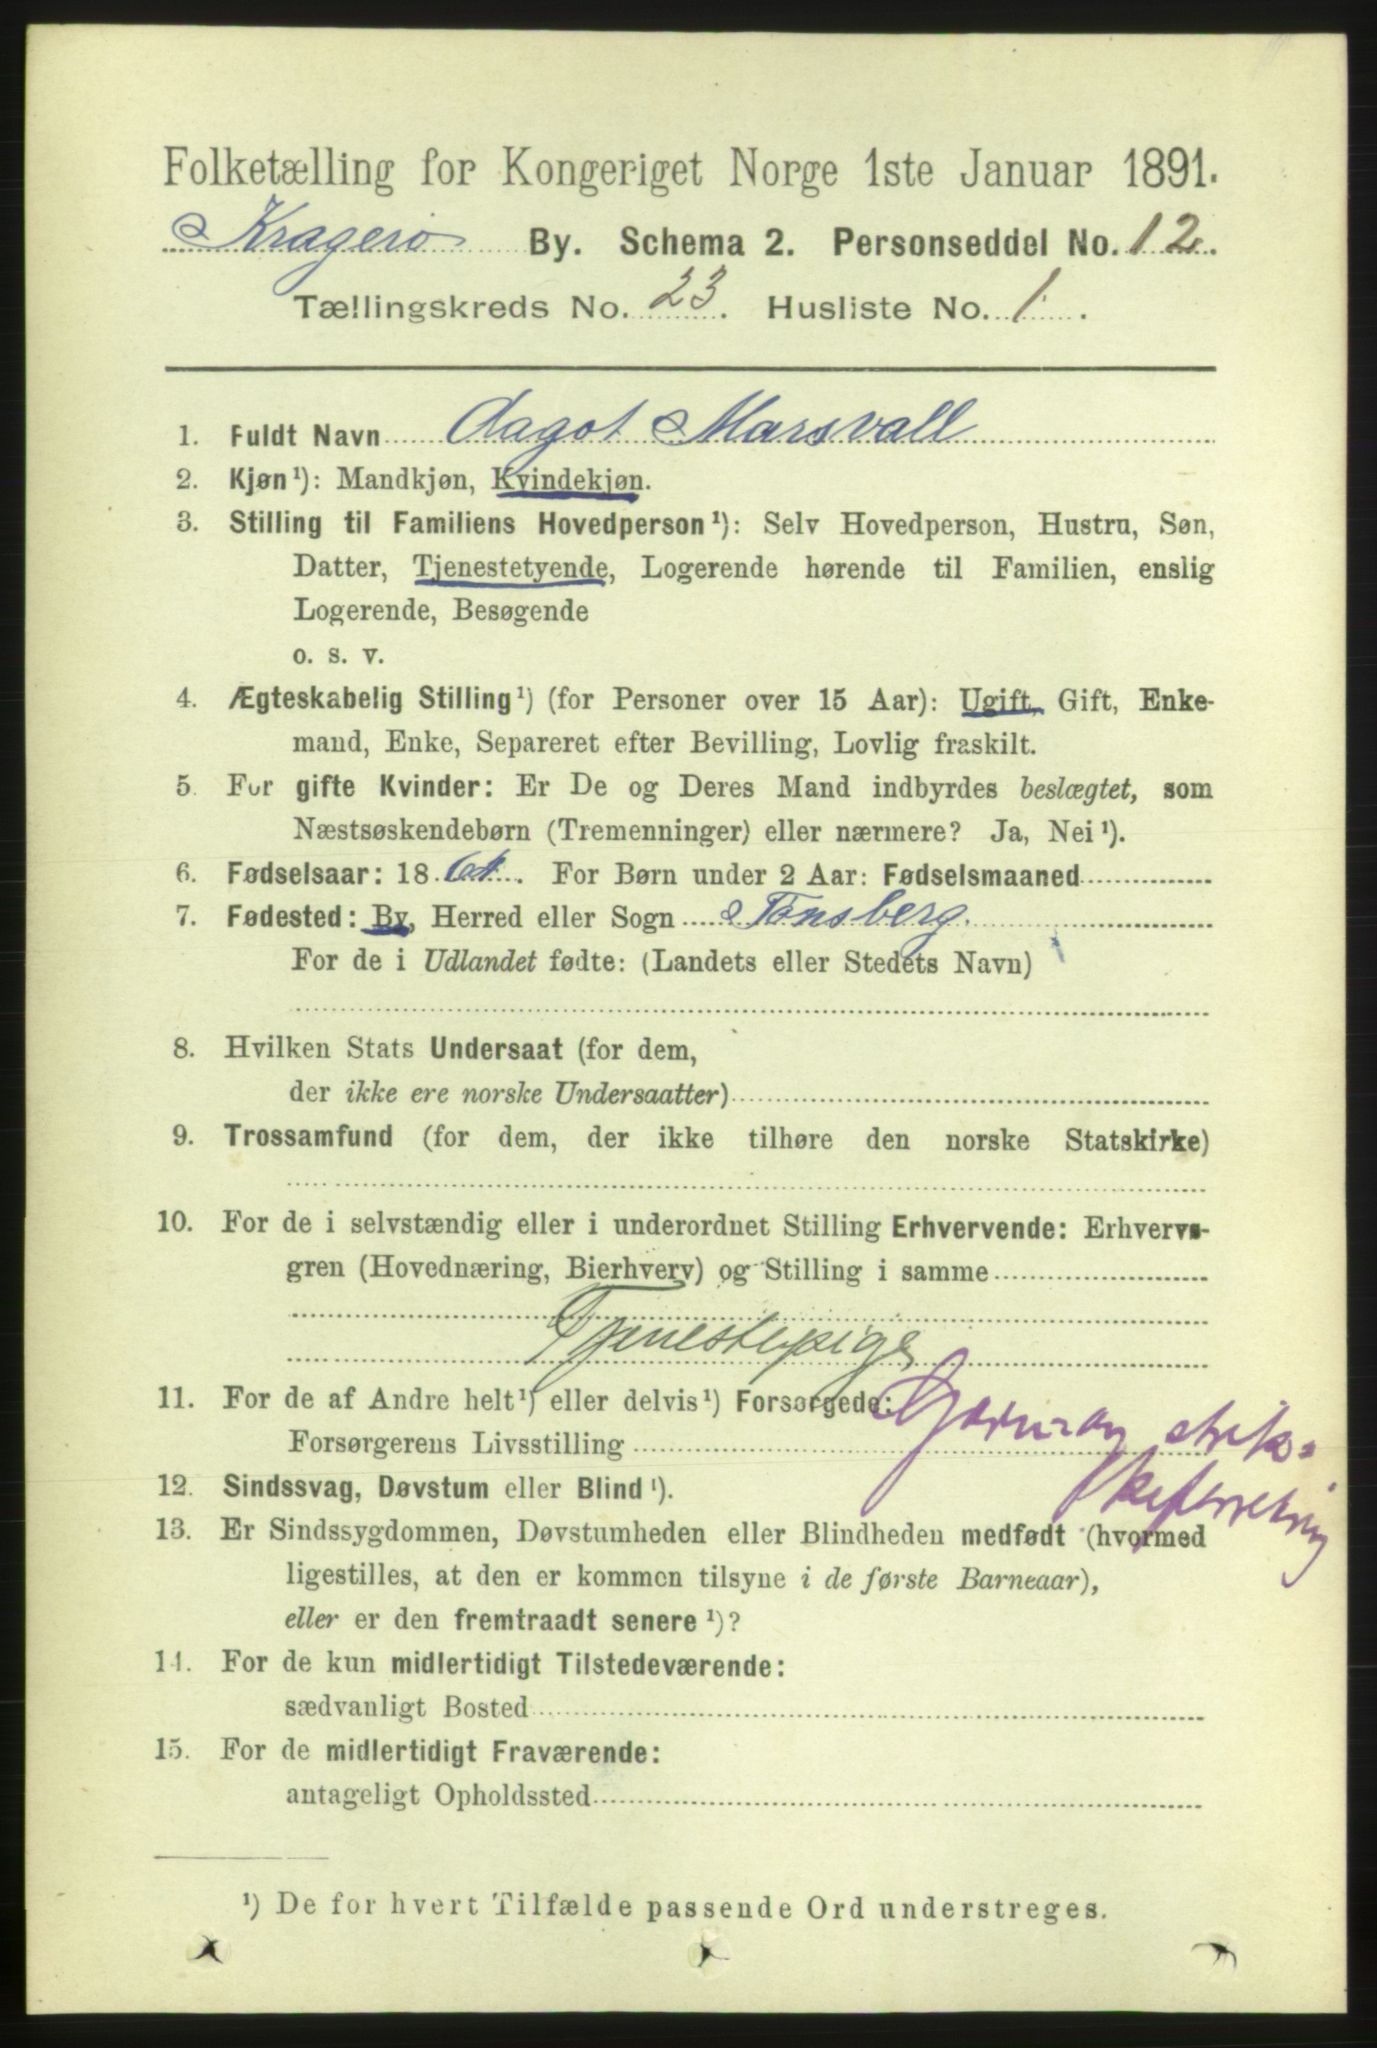 Folketælling for Kongeriget Norge 1ste Januar 1891.
Kragerø By. Schema 2. Personseddel No. 12.
Tællingskreds No. 23. Husliste No. 1.
1. Fuldt Navn Dagot Marsvall
2. Kjøn¹): Mandkjøn, Kvindekjøn.
3. Stilling til Familiens Hovedperson¹): Selv Hovedperson, Hustru, Søn,
Datter, Tjenestetyende, Logerende hørende til Familien, enslig
Logerende, Besøgende
o. s. v.
4. Ægteskabelig Stilling¹) (for Personer over 15 Aar): Ugift, Gift, Enke-
mand, Enke, Separeret efter Bevilling, Lovlig fraskilt.
5. For gifte Kvinder: Er De og Deres Mand indbyrdes beslægtet, som
Næstsøskendebørn (Tremenninger) eller nærmere? Ja, Nei¹).
6. Fødselsaar: 1864. For Børn under 2 Aar: Fødselsmaaned
7. Fødested: By, Herred eller Sogn Tønsberg.
For de i Udlandet fødte: (Landets eller Stedets Navn)
8. Hvilken Stats Undersaat (for dem,
der ikke ere norske Undersaatter)
9. Trossamfund (for dem, der ikke tilhøre den norske Statskirke)
10. For de i selvstændig eller i underordnet Stilling Erhvervende: Erhvervs-
gren (Hovednæring, Bierhverv) og Stilling i samme
Tjenestepige
11. For de af Andre helt¹) eller delvis¹) Forsørgede:
Forsørgerens Livsstilling
12. Sindssvag, Døvstum eller Blind¹).
13. Er Sindssygdommen, Døvstumheden eller Blindheden medfødt (hvormed
ligestilles, at den er kommen tilsyne i de første Barneaar),
eller er den fremtraadt senere¹)?
14. For de kun midlertidigt Tilstedeværende:
sædvanligt Bosted
15. For de midlertidigt Fraværende:
antageligt Opholdssted
¹) De for hvert Tilfælde passende Ord understreges.